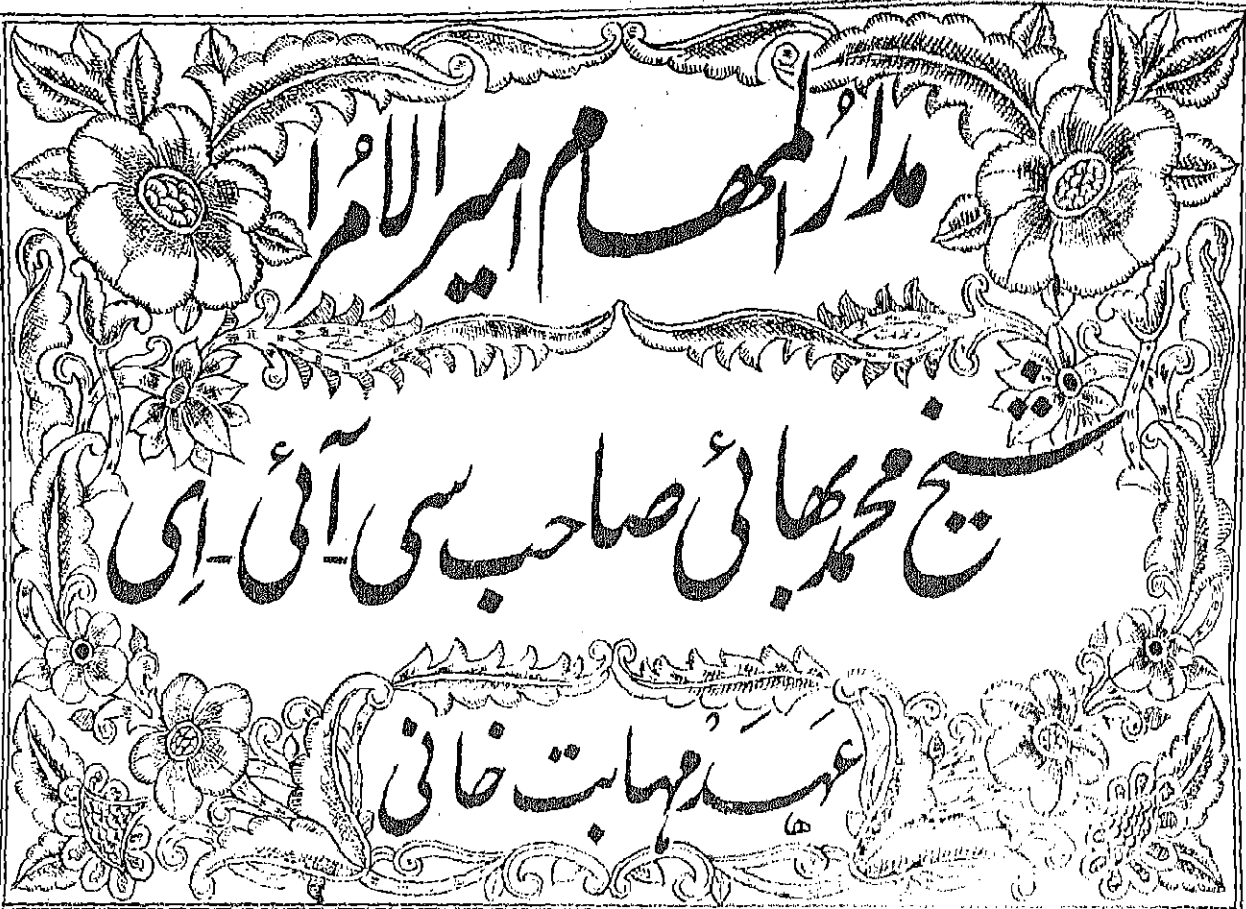 مدارُ المہام امیر الاُمرا
شیخ محمد بھائی صاحب سی۔آئی۔اِی
عہَدَ مُہابت خانی